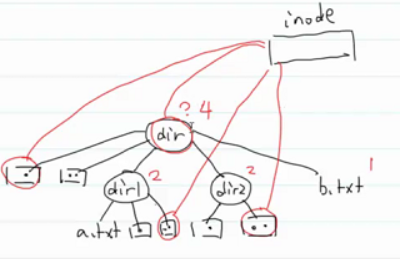 inode
? 4
dir
.
..
dir1 2
dir2 2
b.txt 1
a.txt
.
..
.
..